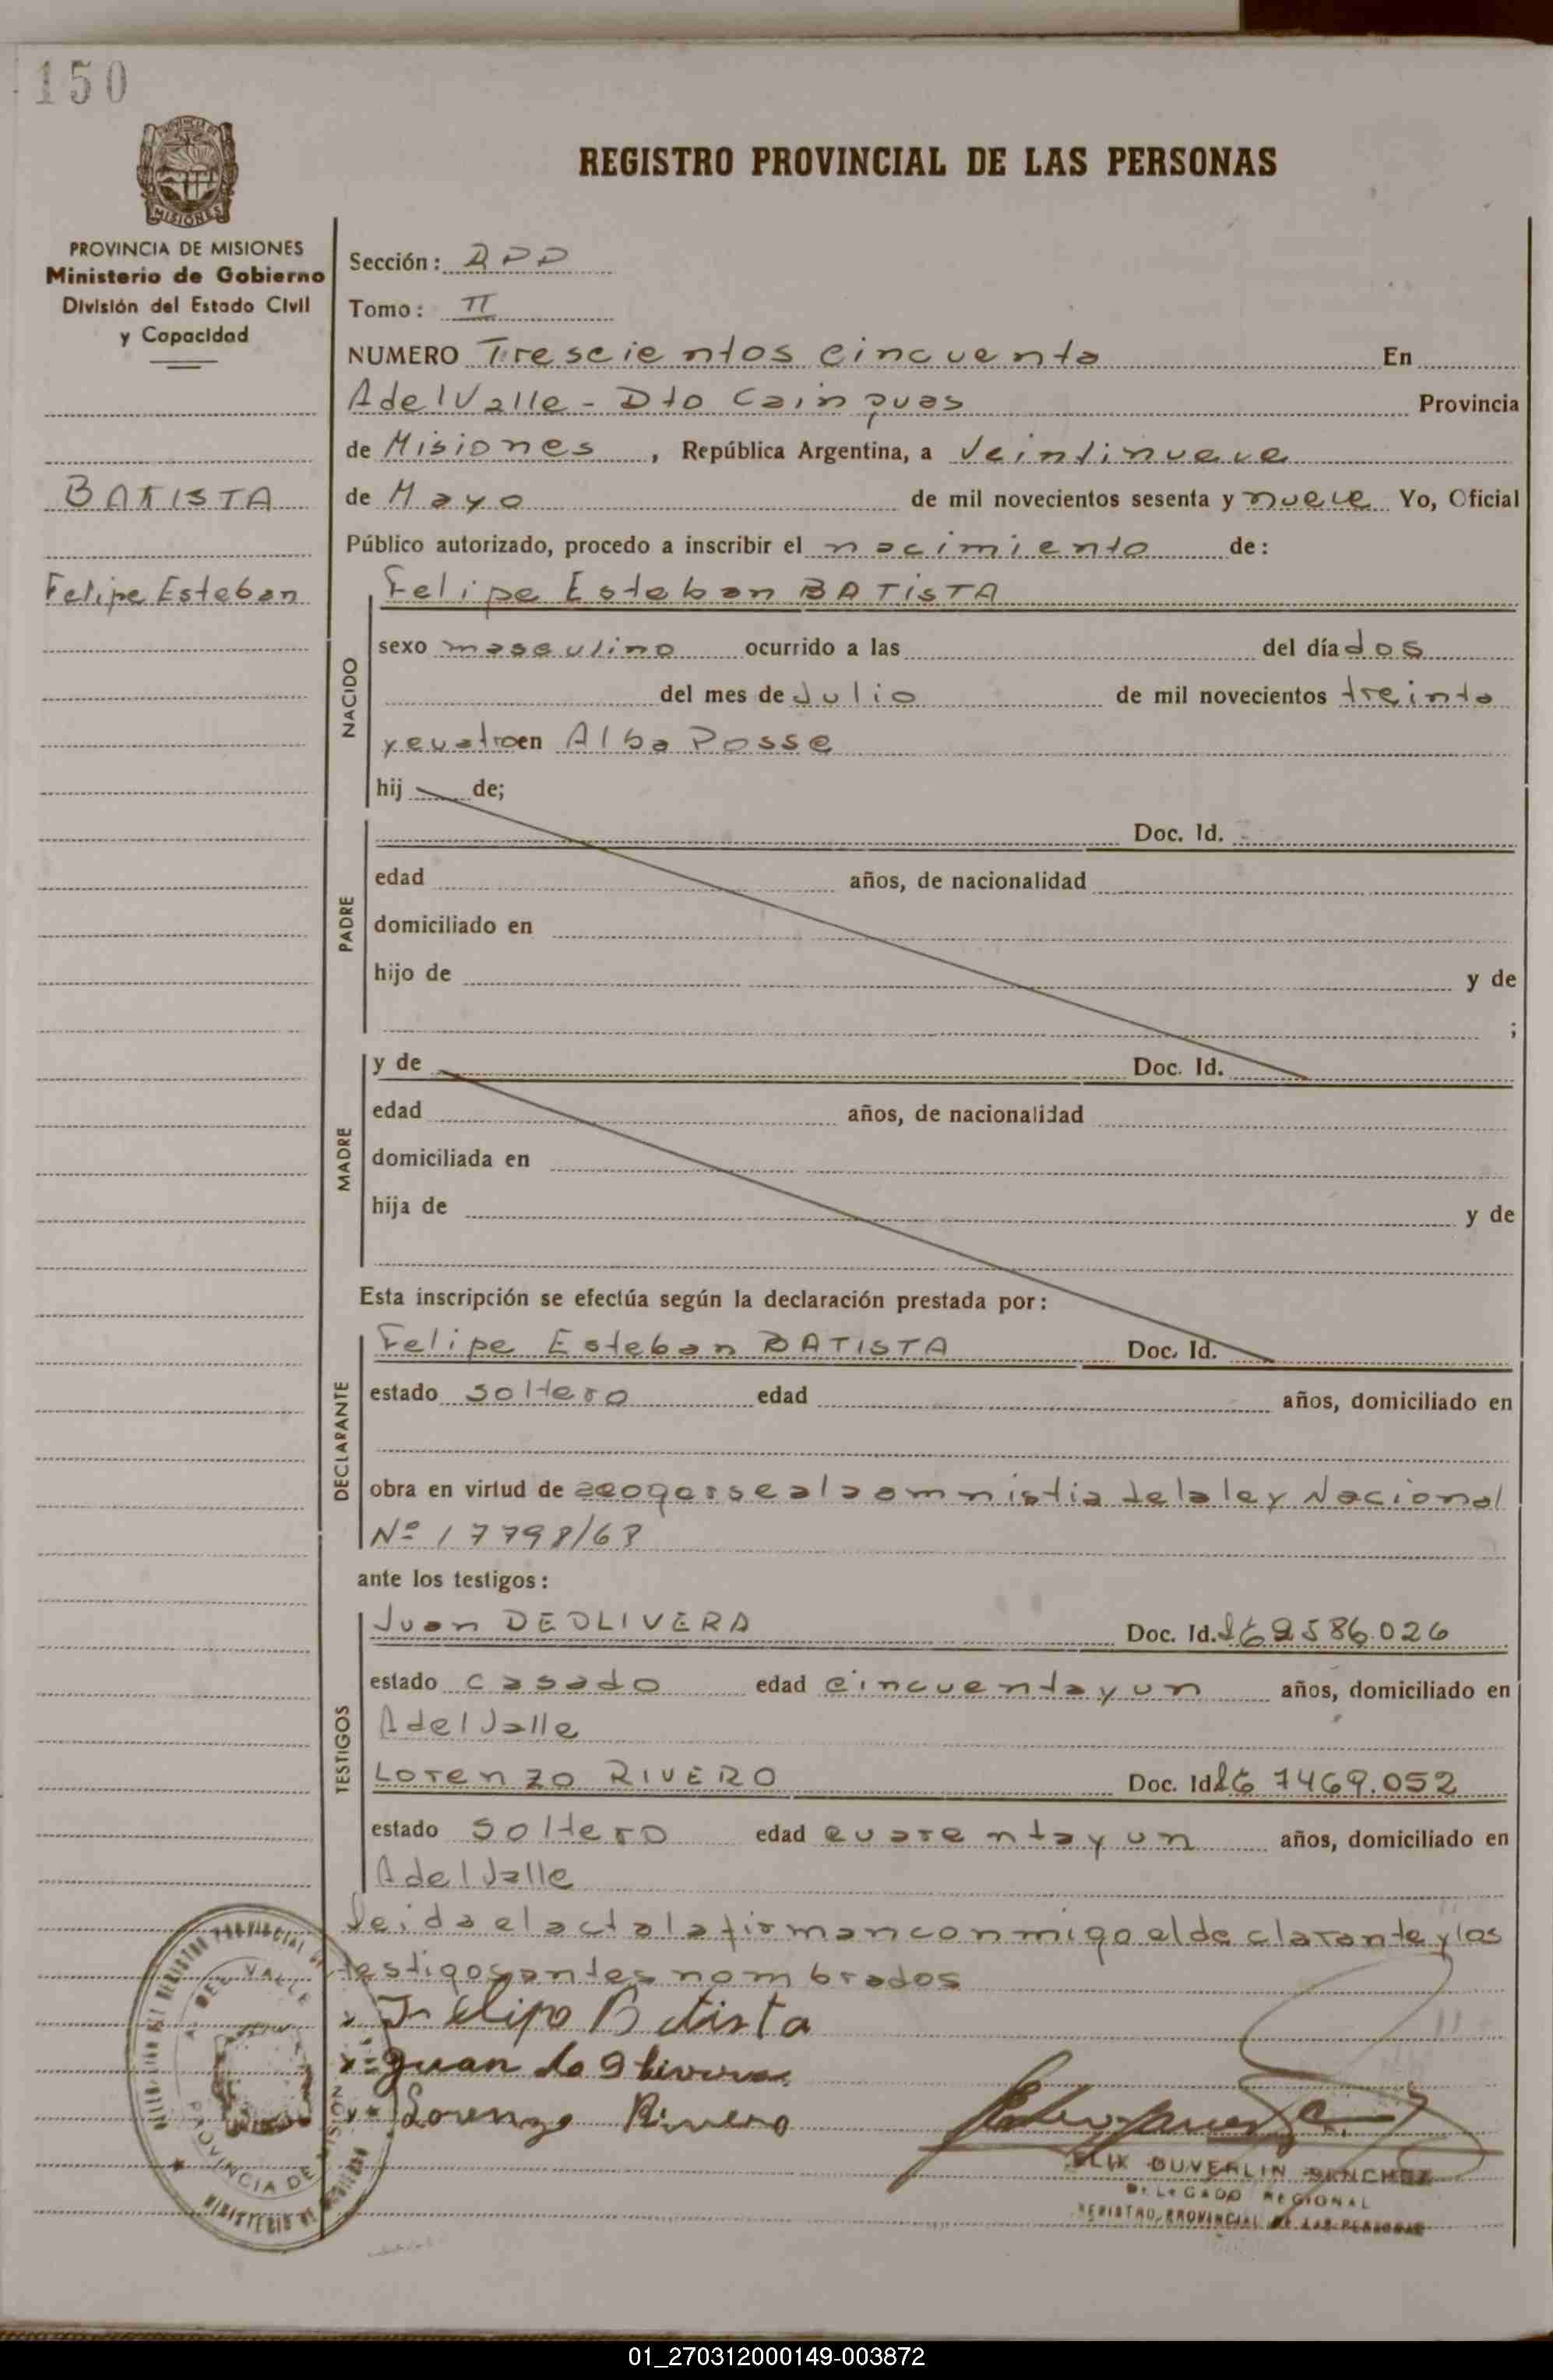 150
PROVINCIA DE MISIONES
Ministerio de Gobierno
División del Estado Civil
y Capacidad
BATISTA
Felipe Esteban
REGISTRO PROVINCIAL DE LAS PERSONAS
Sección:
Tomo: II
NUMERO Trescientos cincuenta En
A del Valle - Dto Cainguas Provincia
de Misiones, República Argentina, a Veintinueve
de Mayo de mil novecientos sesenta y nueve Yo, Oficial
Público autorizado, procedo a inscribir el nacimiento de:
NACIDO
Felipe Esteban BATISTA
sexo masculino ocurrido a las del día dos
del mes de Julio de mil novecientos treinta
y cuatro en Alba Posse
hij de;
PADRE
Doc. Id.
edad años, de nacionalidad
domiciliado en
hijo de y de
;
MADRE
y de Doc. Id.
edad años, de nacionalidad
domiciliada en
hija de y de
Esta inscripción se efectúa según la declaración prestada por:
DECLARANTE
Felipe Esteban BATISTA Doc. Id.
estado soltero edad años, domiciliado en
obra en virtud de acogerse a la omnistia de la ley Nacional
Nº 17798/68
ante los testigos:
TESTIGOS
Juan DEOLIVERA Doc. Id. 2586.026
estado casado edad cincuenta y un años, domiciliado en
A del Valle
Lorenzo RIVERO Doc. Id 7469.052
estado soltero edad cuarenta y un años, domiciliado en
A del Valle
Leida el acta la firman conmigo el declarante y los
testigos antes nombrados
Felipe Batista
Juan de Olivera
Lorenzo Rivero
DUVERLIN SANCHEZ
DELEGADO REGIONAL
REGISTRO PROVINCIAL DE LAS PERSONAS
A. DEL VALLE
PROVINCIA DE MISIONES
01_270312000149-003872